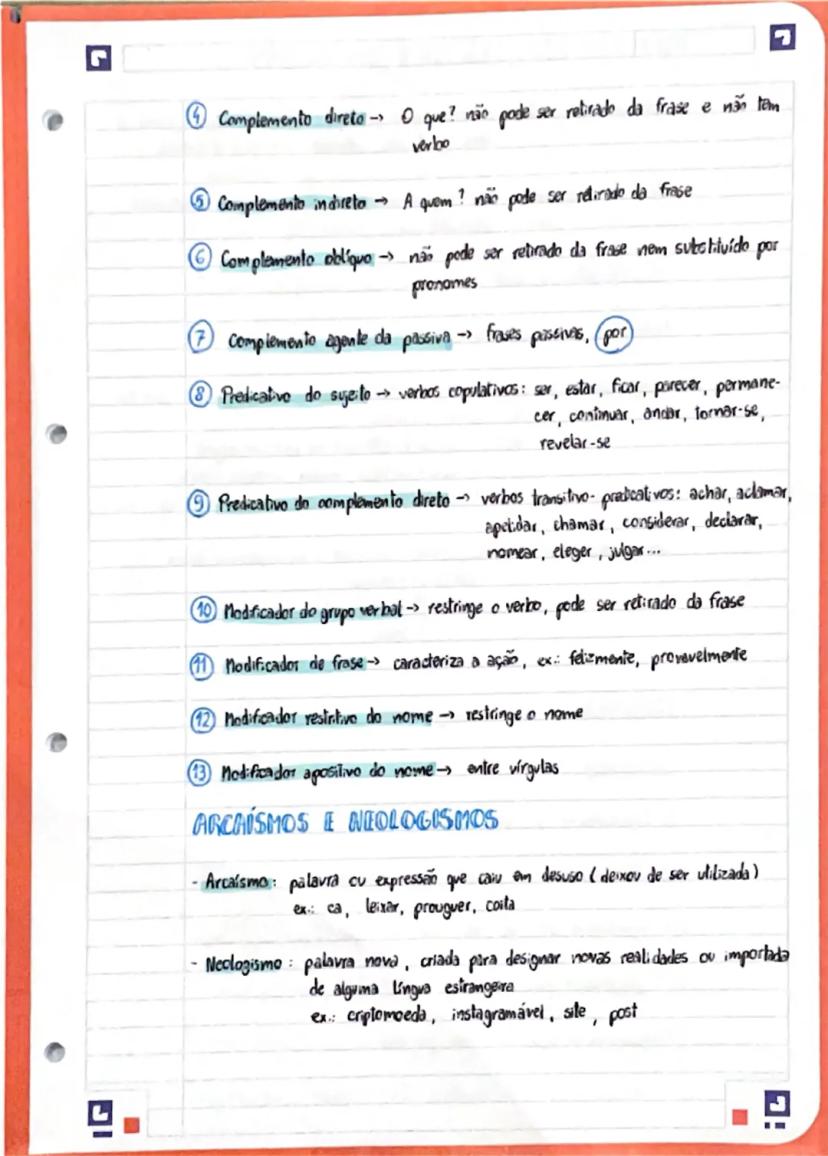 4 Complemento direto → O que? não pode ser retirado da frase e não tem
verbo
5 Complemento indireto → A quem? não pode ser retirado da frase
6 Complemento oblíquo → não pode ser retirado da frase nem substituído por
pronomes
7 Complemento agente da passiva → frases passivas, por
8 Predicativo do sujeito → verbos copulativos: ser, estar, ficar, parecer, permane-
cer, continuar, andar, tornar-se,
revelar-se
9 Predicativo do complemento direto → verbos transitivo-predicativos: achar, aclamar,
apelidar, chamar, considerar, declarar,
nomear, eleger, julgar...
10 Modificador do grupo verbal → restringe o verbo, pode ser retirado da frase
11 Modificador de frase → caracteriza a ação, ex.: felizmente, provavelmente
12 Modificador restritivo do nome → restringe o nome
13 Modificador apositivo do nome → entre vírgulas
ARCAÍSMOS E NEOLOGISMOS
- Arcaísmo: palavra ou expressão que caiu em desuso (deixou de ser utilizada)
ex.: ca, leixar, prouguer, coita
- Neologismo: palavra nova, criada para designar novas realidades ou importada
de alguma língua estrangeira
ex.: criptomoeda, instagramável, site, post